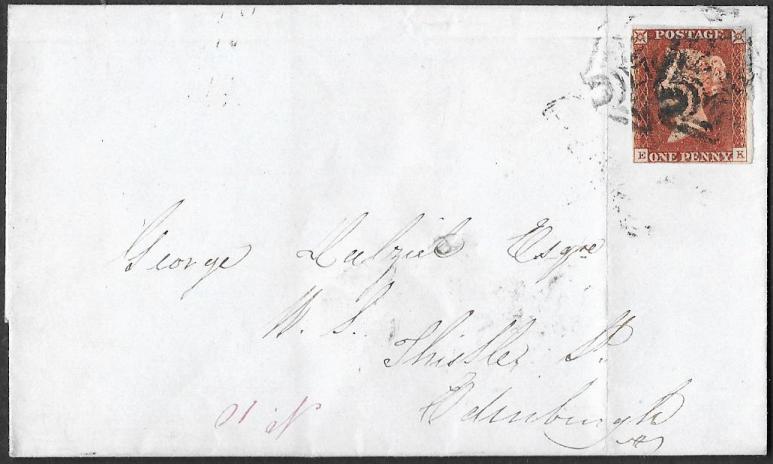 POSTAGE
E ONE PENNY K
George Dalziel Esqre
W. S.
Thistle St.
Edinburgh